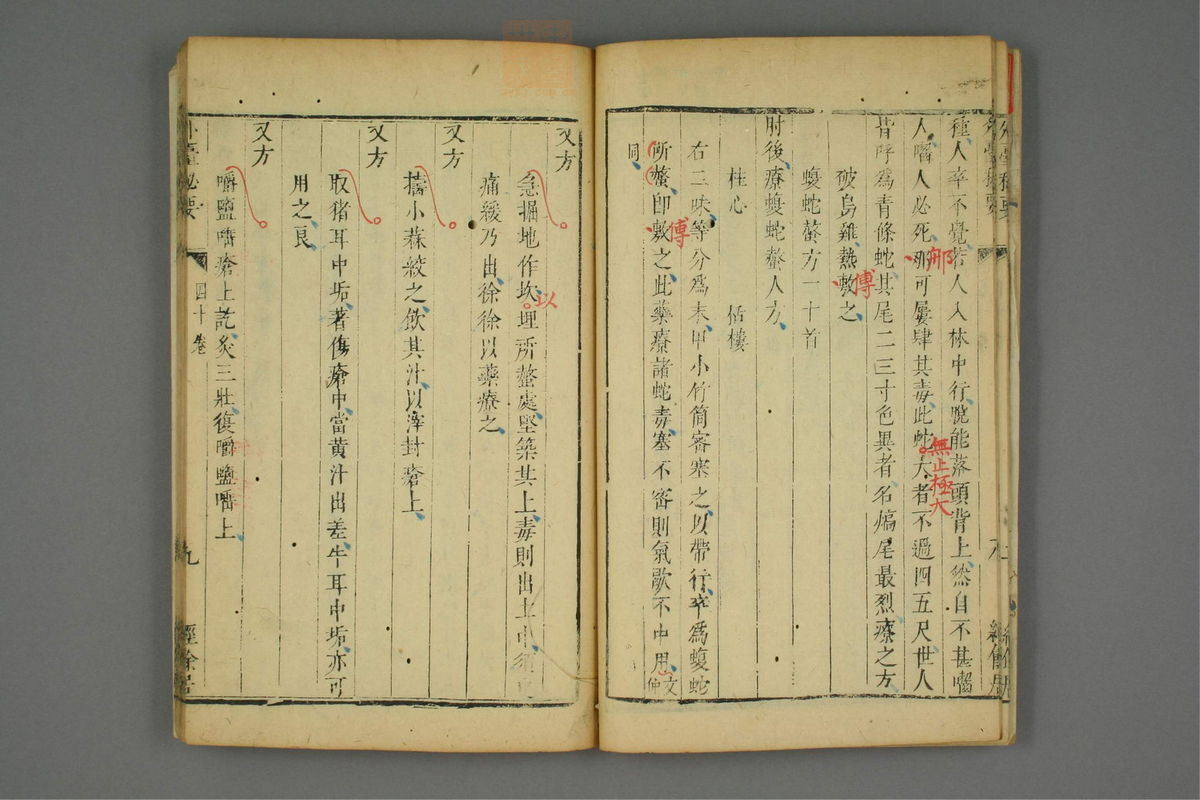 種人卒不覺若人入林中行脫能落頭背上然自不甚嚙
人嚙人必死那可屢肆其毒此蛇大者不過四五尺世人
皆呼爲青條蛇其尾二三寸色異者名熇尾最烈療之方
破烏雞熱敷之
蝮蛇螫方一十首
肘後療蝮蛇螫人方
桂心 栝樓
右二味等分爲末用小竹筒密塞之以帶行卒爲蝮蛇
所螫即敷之此藥療諸蛇毒塞不密則氣歇不中用文仲
同
那
無
止極大
傅
傅
又方
急掘地作坎埋所螫處堅築其上毒則出土中須
痛緩乃出徐徐以藥療之
以
又方
擣小蒜絞之飲其汁以滓封瘡上
又方
取猪耳中垢著傷瘡中當黃汁出差牛耳中垢亦可
用之良
又方
嚼鹽唾瘡上訖灸三壯復嚼鹽唾上
外臺秘要 四十卷 九 經餘居